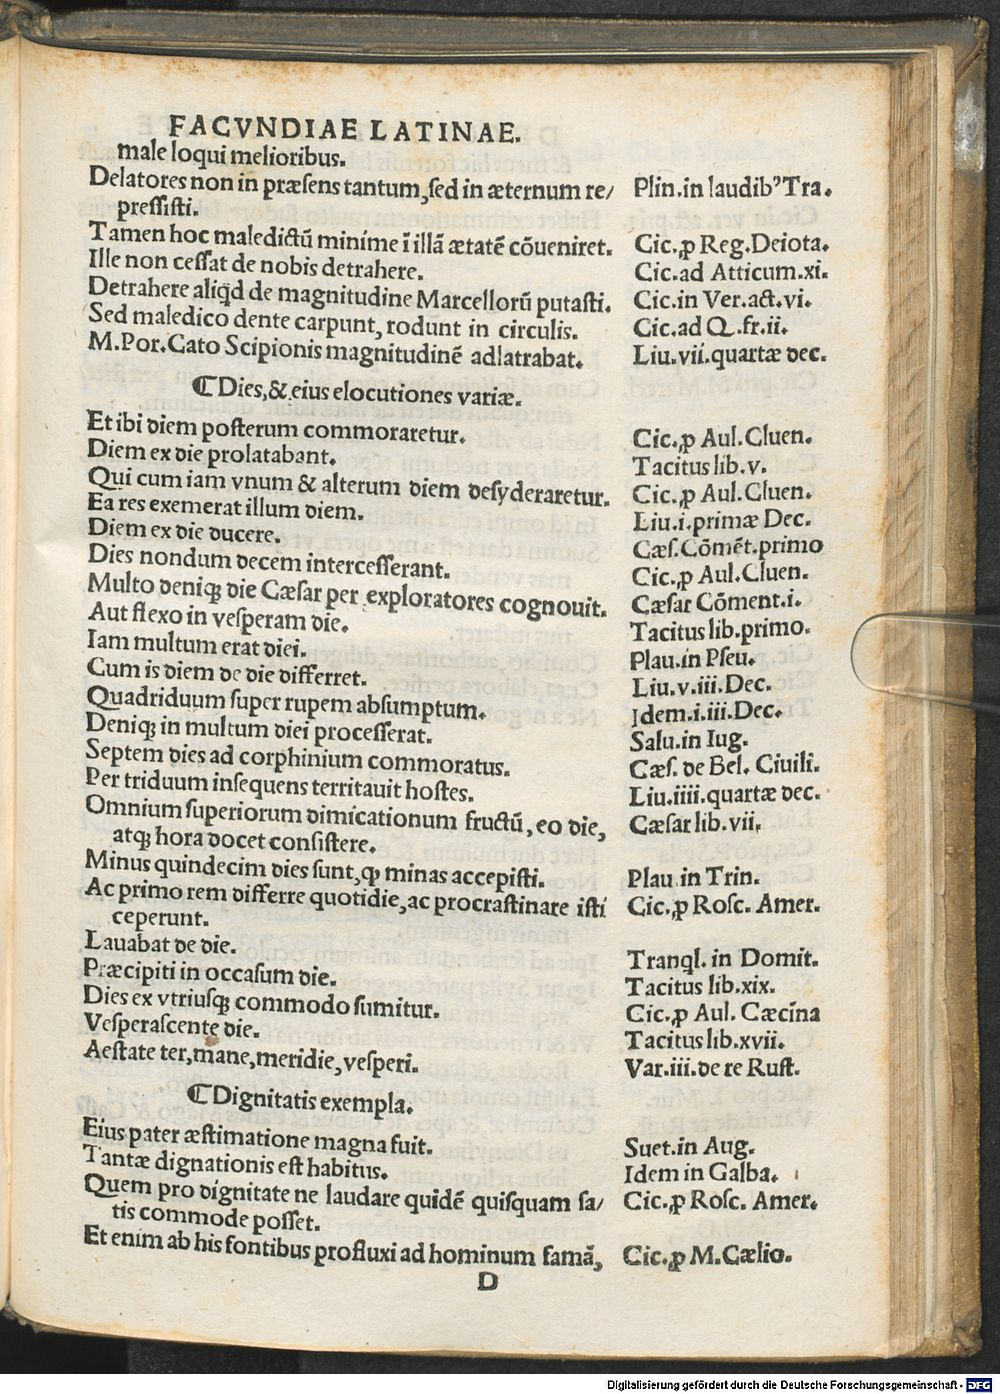 FACVNDIAE LATINAE.
male loqui melioribus.
Delatores non in præsens tantum, sed in æternum re/ Plin.in laudibꝰ Tra.
pressisti.
Tamen hoc maledictū miníme ī illā ætatē cōueniret. Cic.ꝓ Reg.Deiota.
Ille non cessat de nobis detrahere. Cic.ad Atticum.xi.
Detrahere aliqd de magnitudine Marcellorū putasti. Cic.in Ver.act.vi.
Sed maledico dente carpunt, rodunt in circulis. Cic.ad Q.fr.ii.
M.Por.Cato Scipionis magnitudinē adlatrabat. Liu.vii.quartæ dec.
⸿ Dies, & eius elocutiones variæ.
Et ibi diem posterum commoraretur. Cic.ꝓ Aul.Cluen.
Diem ex die prolatabant. Tacitus lib.v.
Qui cum iam vnum & alterum diem desyderaretur. Cic.ꝓ Aul.Cluen.
Ea res exemerat illum diem. Liu.i.primæ Dec.
Diem ex die ducere. Cæs.Cōmēt.primo
Dies nondum decem intercesserant. Cic.ꝓ Aul.Cluen.
Multo deniqꝫ die Cæsar per exploratores cognouit. Cæsar Cōment.i.
Aut flexo in vesperam die. Tacitus lib.primo.
Iam multum erat diei. Plau.in Pseu.
Cum is diem de die differret. Liu.v.iii.Dec.
Quadriduum super rupem absumptum. Idem.i.iii.Dec.
Deniqꝫ in multum diei processerat. Salu.in Iug.
Septem dies ad corphinium commoratus. Cæs. de Bel. Ciuili.
Per triduum insequens territauit hostes. Liu.iiii.quartæ dec.
Omnium superiorum dimicationum fructū, eo die, Cæsar lib.vii.
atqꝫ hora docet consistere.
Minus quindecim dies sunt, qp minas accepisti. Plau in Trin.
Ac primo rem differre quotidie, ac procrastinare isti Cic.ꝓ Rosc. Amer.
ceperunt.
Lauabat de die. Tranql. in Domit.
Præcipiti in occasum die. Tacitus lib.xix.
Dies ex vtriusqꝫ commodo sumitur. Cic.ꝓ Aul. Cæcína
Vesperascente die. Tacitus lib.xvii.
Aestate ter, mane, meridie, vesperi. Var.iii.de re Rust.
⸿ Dignitatis exempla.
Eius pater æstimatione magna fuit. Suet.in Aug.
Tantæ dignationis est habitus. Idem in Galba.
Quem pro dígnitate ne laudare quidē quisquam sa/ Cic.ꝓ Rosc. Amer.
tis commode posset.
Et enim ab his fontibus profluxi ad hominum famā, Cic.ꝓ M.Cælio.
D
Digitalisierung gefördert durch die Deutsche Forschungsgemeinschaft - DFG